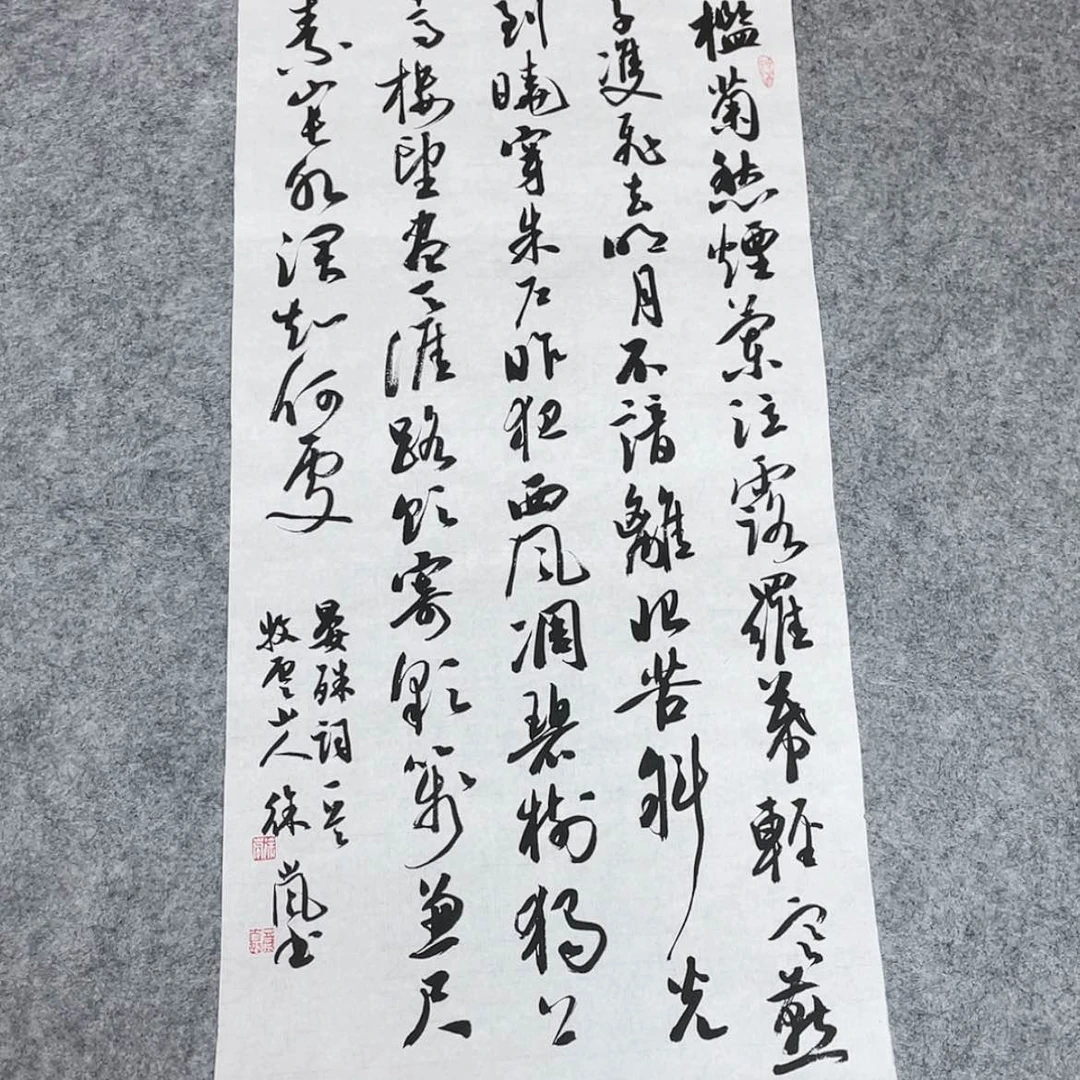 檻菊愁煙蘭泣露羅幕輕寒燕
子雙飛去明月不諳離恨苦斜光
到曉穿朱戶昨夜西風凋碧樹獨上
高樓望盡天涯路欲寄彩箋兼尺
素山長水濶知何處
晏殊詞一首
牧雲山人徐嵐书